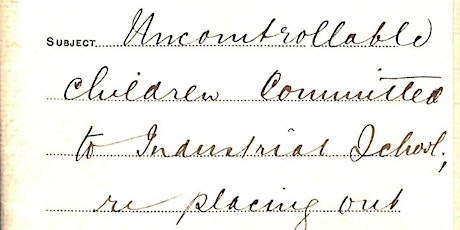 SUBJECT Uncomtrollable
children Committed
to Industrial School;
re placing out